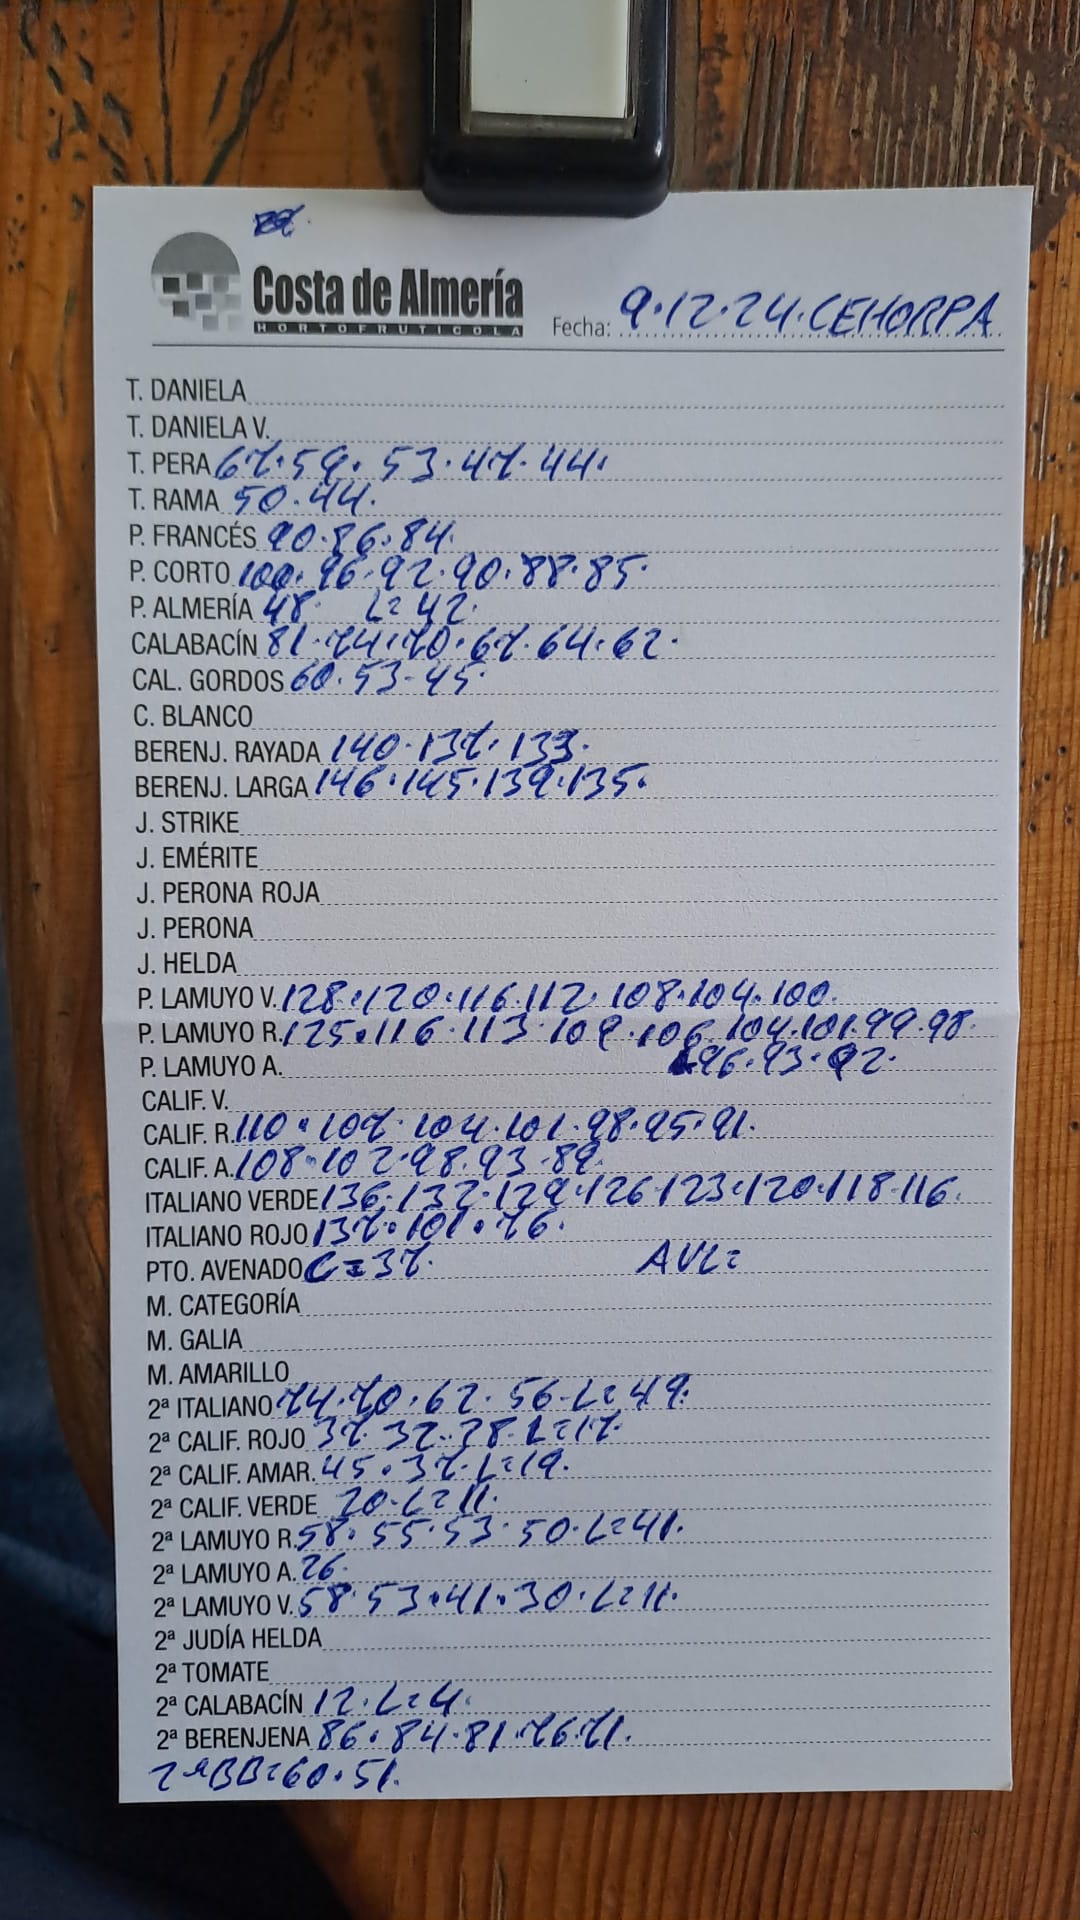 Costa de Almería
HORTOFRUTICOLA
Fecha: 9.12.24.CEHORPA
T. DANIELA
T. DANIELA V.
T. PERA 67.59.53.47.44.
T. RAMA 50.44.
P. FRANCÉS 90.86.84.
P. CORTO 100.96.92.90.88.85.
P. ALMERÍA 48. L=42.
CALABACÍN 81.74.70.67.64.62.
CAL. GORDOS 60.53.45.
C. BLANCO
BERENJ. RAYADA 140.137.133.
BERENJ. LARGA 146.145.139.135.
J. STRIKE
J. EMÉRITE
J. PERONA ROJA
J. PERONA
J. HELDA
P. LAMUYO V. 128.120.116.112.108.104.100.
P. LAMUYO R. 125.116.113.109.106.104.101.99.98.
P. LAMUYO A. 96.93.92.
CALIF. V.
CALIF. R. 110.107.104.101.98.95.91.
CALIF. A. 108.102.98.93.89.
ITALIANO VERDE 136.132.129.126.123.120.118.116.
ITALIANO ROJO 137.101.76.
PTO. AVENADO C=37. AVL=
M. CATEGORÍA
M. GALIA
M. AMARILLO
2ª ITALIANO 74.70.62.56.L=49.
2ª CALIF. ROJO 37.32.28.L=17.
2ª CALIF. AMAR. 45.37.L=19.
2ª CALIF. VERDE 20.L=11.
2ª LAMUYO R. 58.55.53.50.L=41.
2ª LAMUYO A. 26.
2ª LAMUYO V. 58.53.41.30.L=11.
2ª JUDÍA HELDA
2ª TOMATE
2ª CALABACÍN 12.L=4.
2ª BERENJENA 86.84.81.76.71.
2ªBB=60.51.